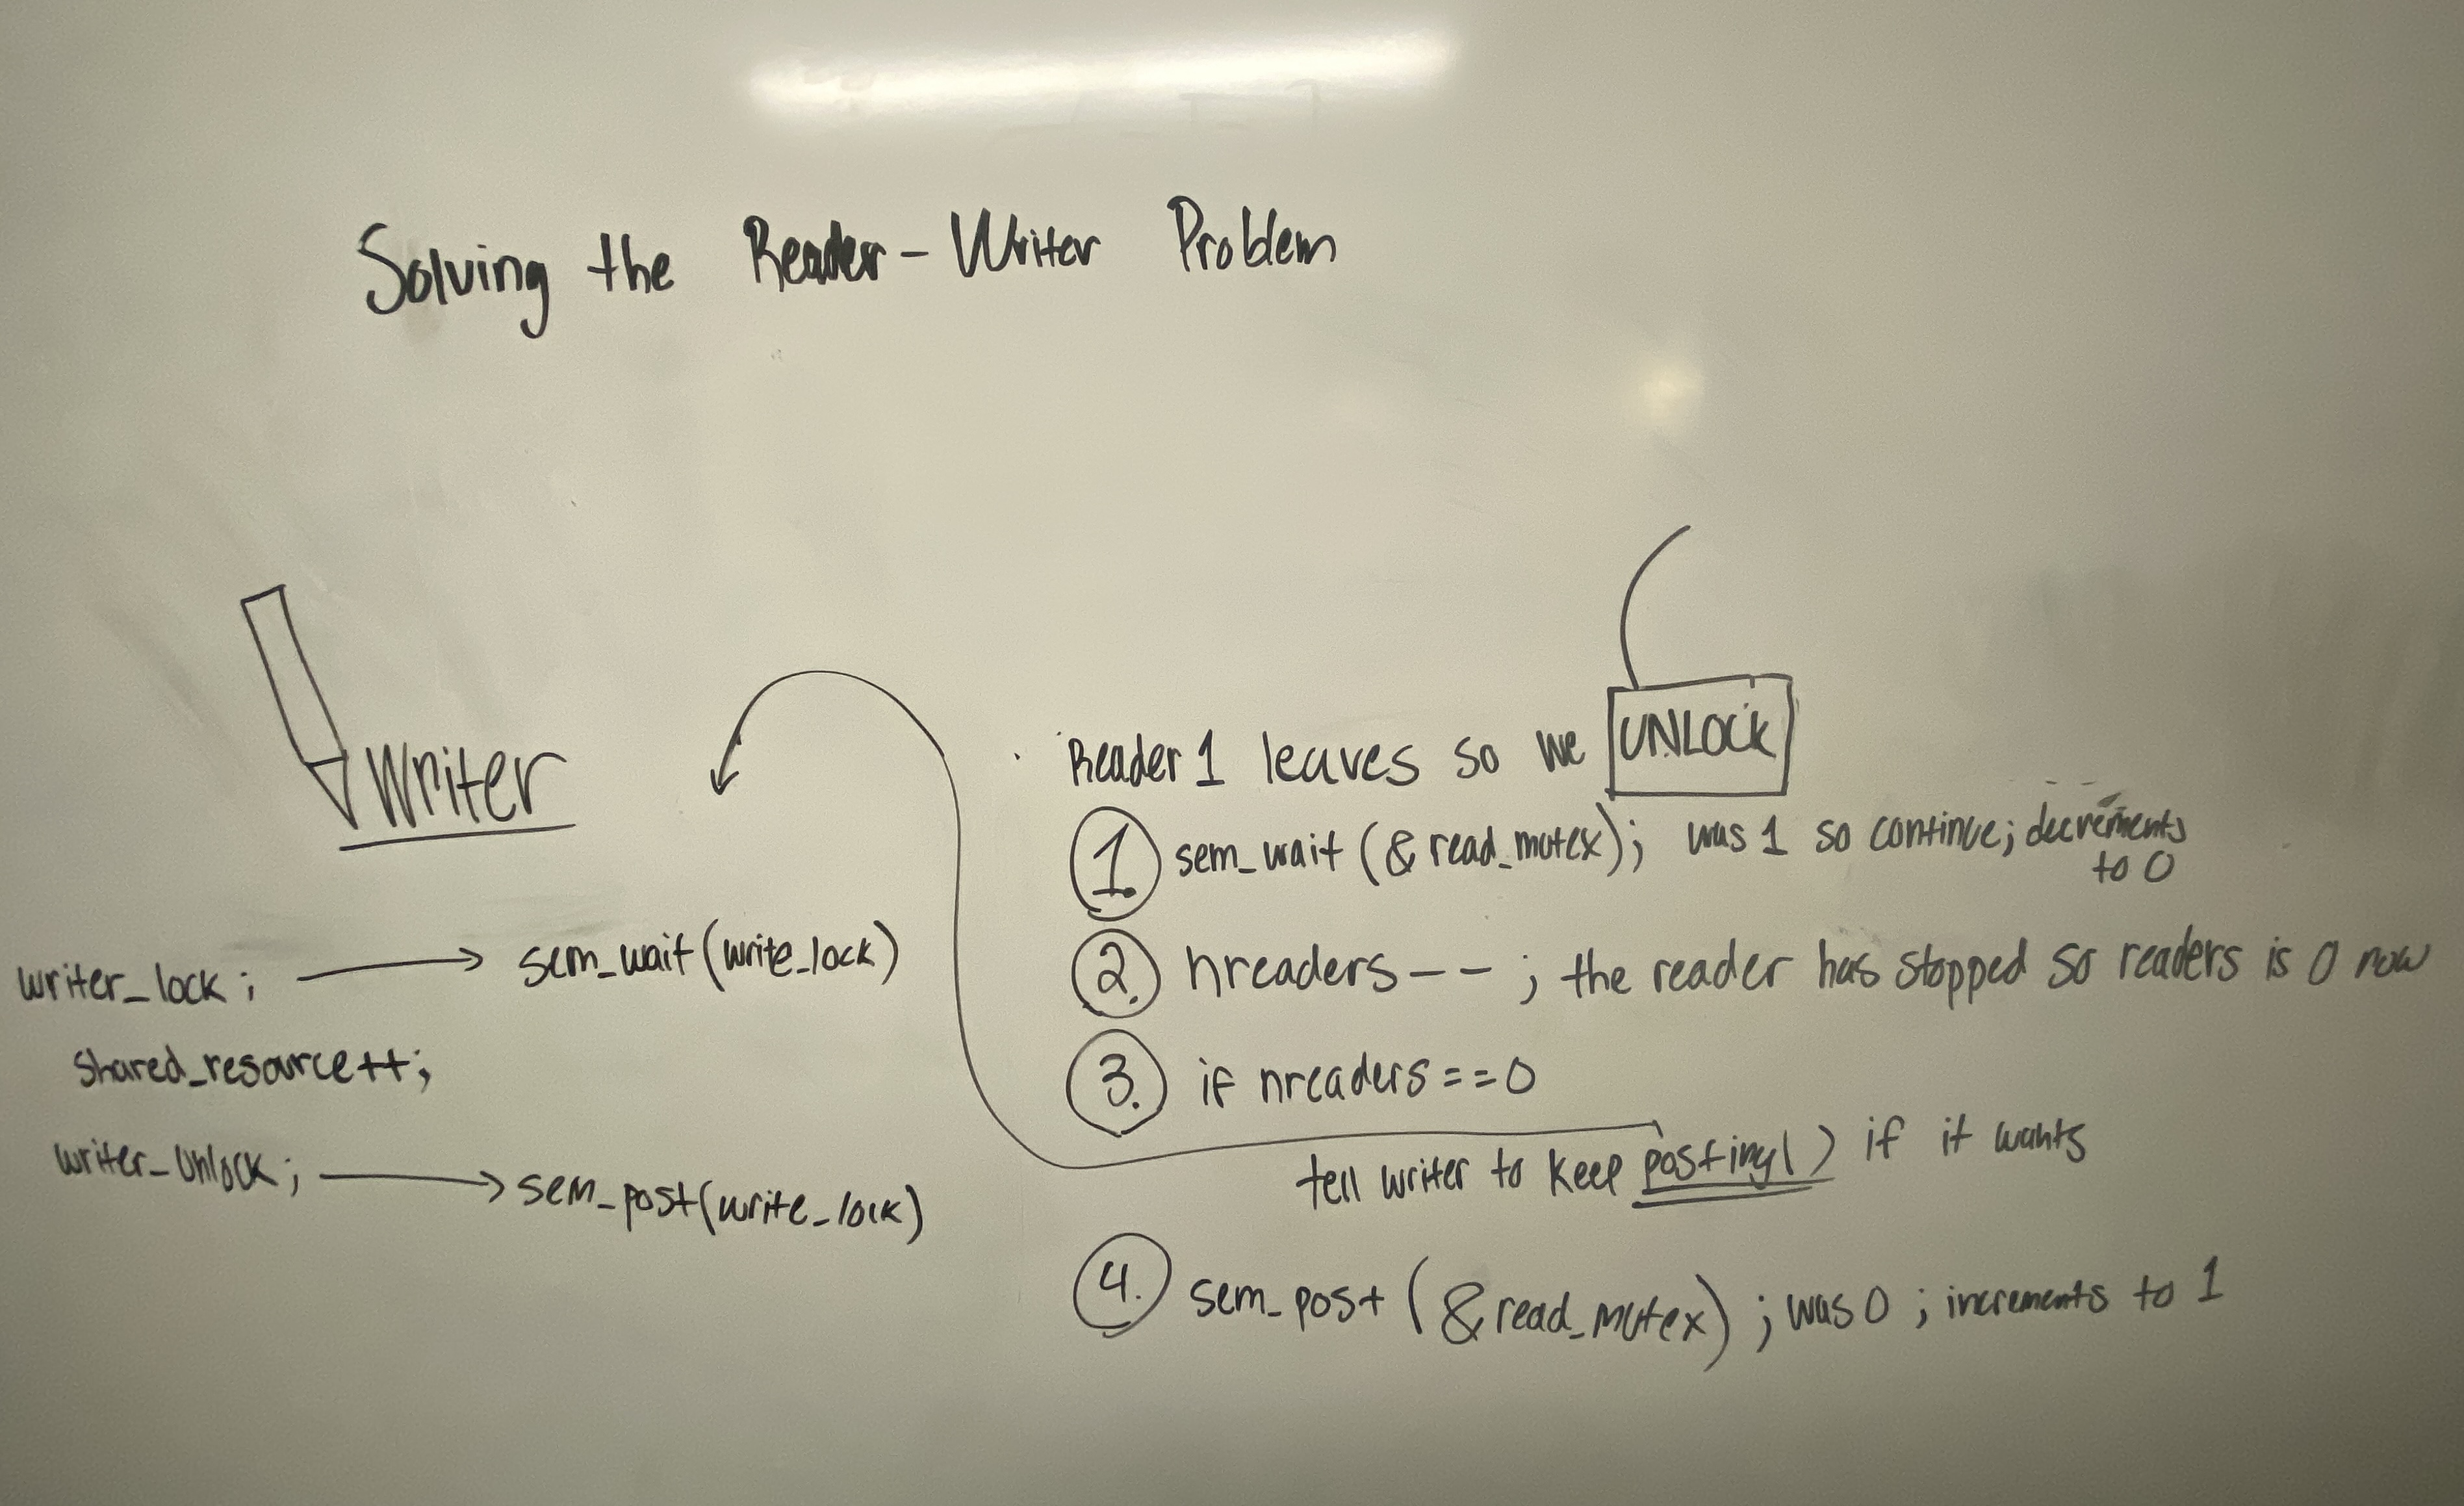 Solving the Reader - Writer Problem
Writer
writer_lock; → sem_wait(write_lock)
shared_resource++;
writer_unlock; → sem_post(write_lock)
Reader 1 leaves so we UNLOCK
1. sem_wait (& read_mutex); was 1 so continue; decrements
to 0
2. nreaders-- ; the reader has stopped so readers is 0 now
3. if nreaders==0
tell writer to keep posting() if it wants
4. sem_post (& read_mutex) ; was 0 ; increments to 1